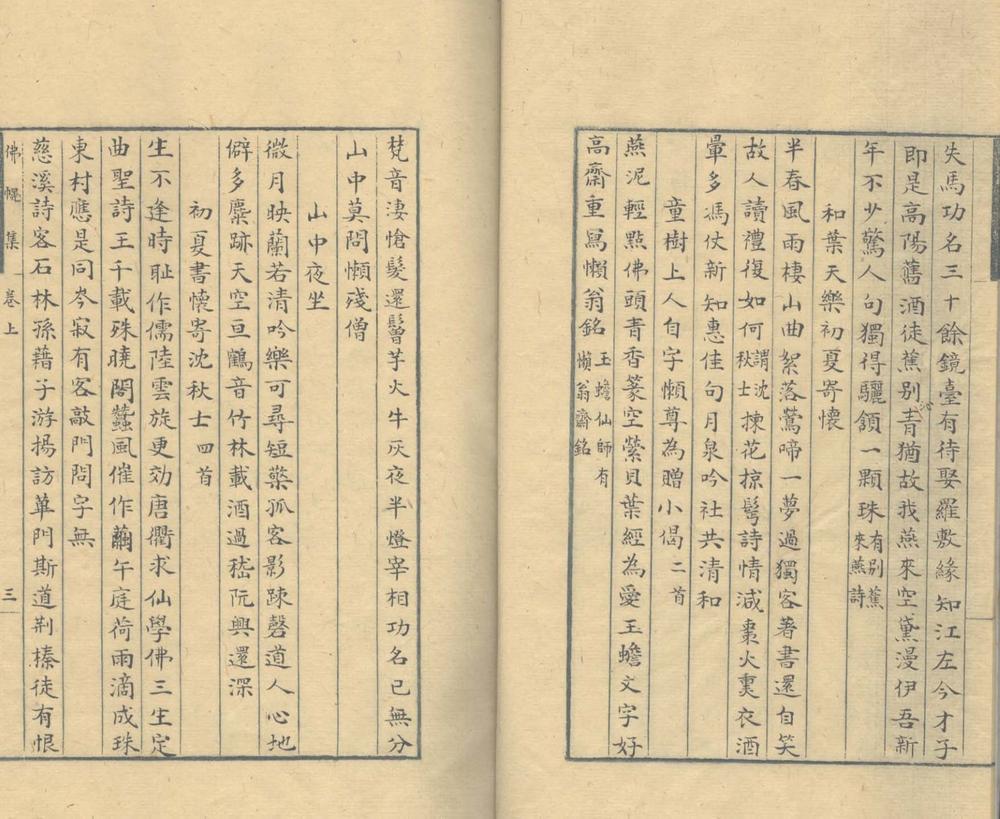 失馬功名三十餘鏡臺有待娶羅敷緣知江左今才子
即是高陽舊酒徒蕉別青猶故我燕來空黛漫伊吾新
年不少驚人句獨得驪頷一顆珠有別蕉來燕詩
和葉天樂初夏寄懷
半春風雨棲山曲絮落鶯啼一夢過獨客著書還自笑
故人讀禮復如何謂沈秋士揀花掠鬓詩情減棗火熏衣酒
暈多馮仗新知惠佳句月泉吟社共清和
童樹上人自字懶尊為贈小偈二首
燕泥輕點佛頭青香篆空縈貝葉經為愛玉蟾文字好
高齋重寫懶翁銘玉蟾仙師有懶翁齋銘
梵音淒愴髮還鬙芋火牛灰夜半燈宰相功名已無分
山中莫問懶殘僧
山中夜坐
微月映蘭若清吟樂可尋短檠孤客影疎磬道人心地
僻多麋跡天空亘鶴音竹林載酒過嵇阮興還深
初夏書懷寄沈秋士四首
生不逢時耻作儒陸雲旋更効唐衢求仙學佛三生定
曲聖詩王千載殊曉閣蠶風催作繭午庭荷雨滴成珠
東村應是同岑寂有客敲門問字無
慈溪詩客石林孫藉子游揚訪蓽門斯道荆榛徒有恨
佛幌集 卷上 三